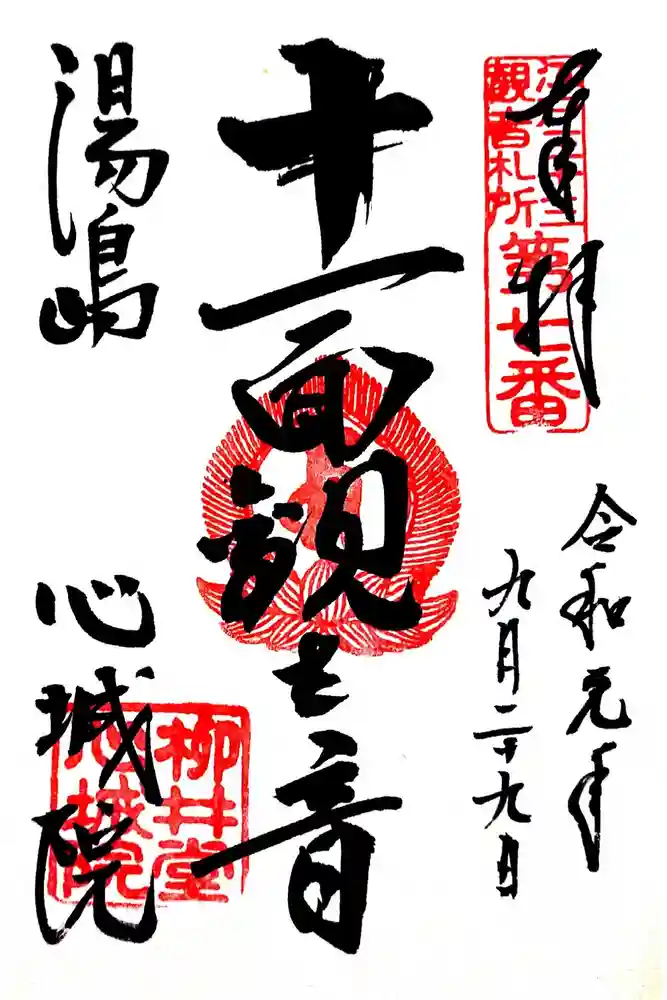 奉拝
江戸三十三
觀音札所
第七番
令和元年
九月二十九日
十一面観世音
湯島
心城院
柳井堂
心城院